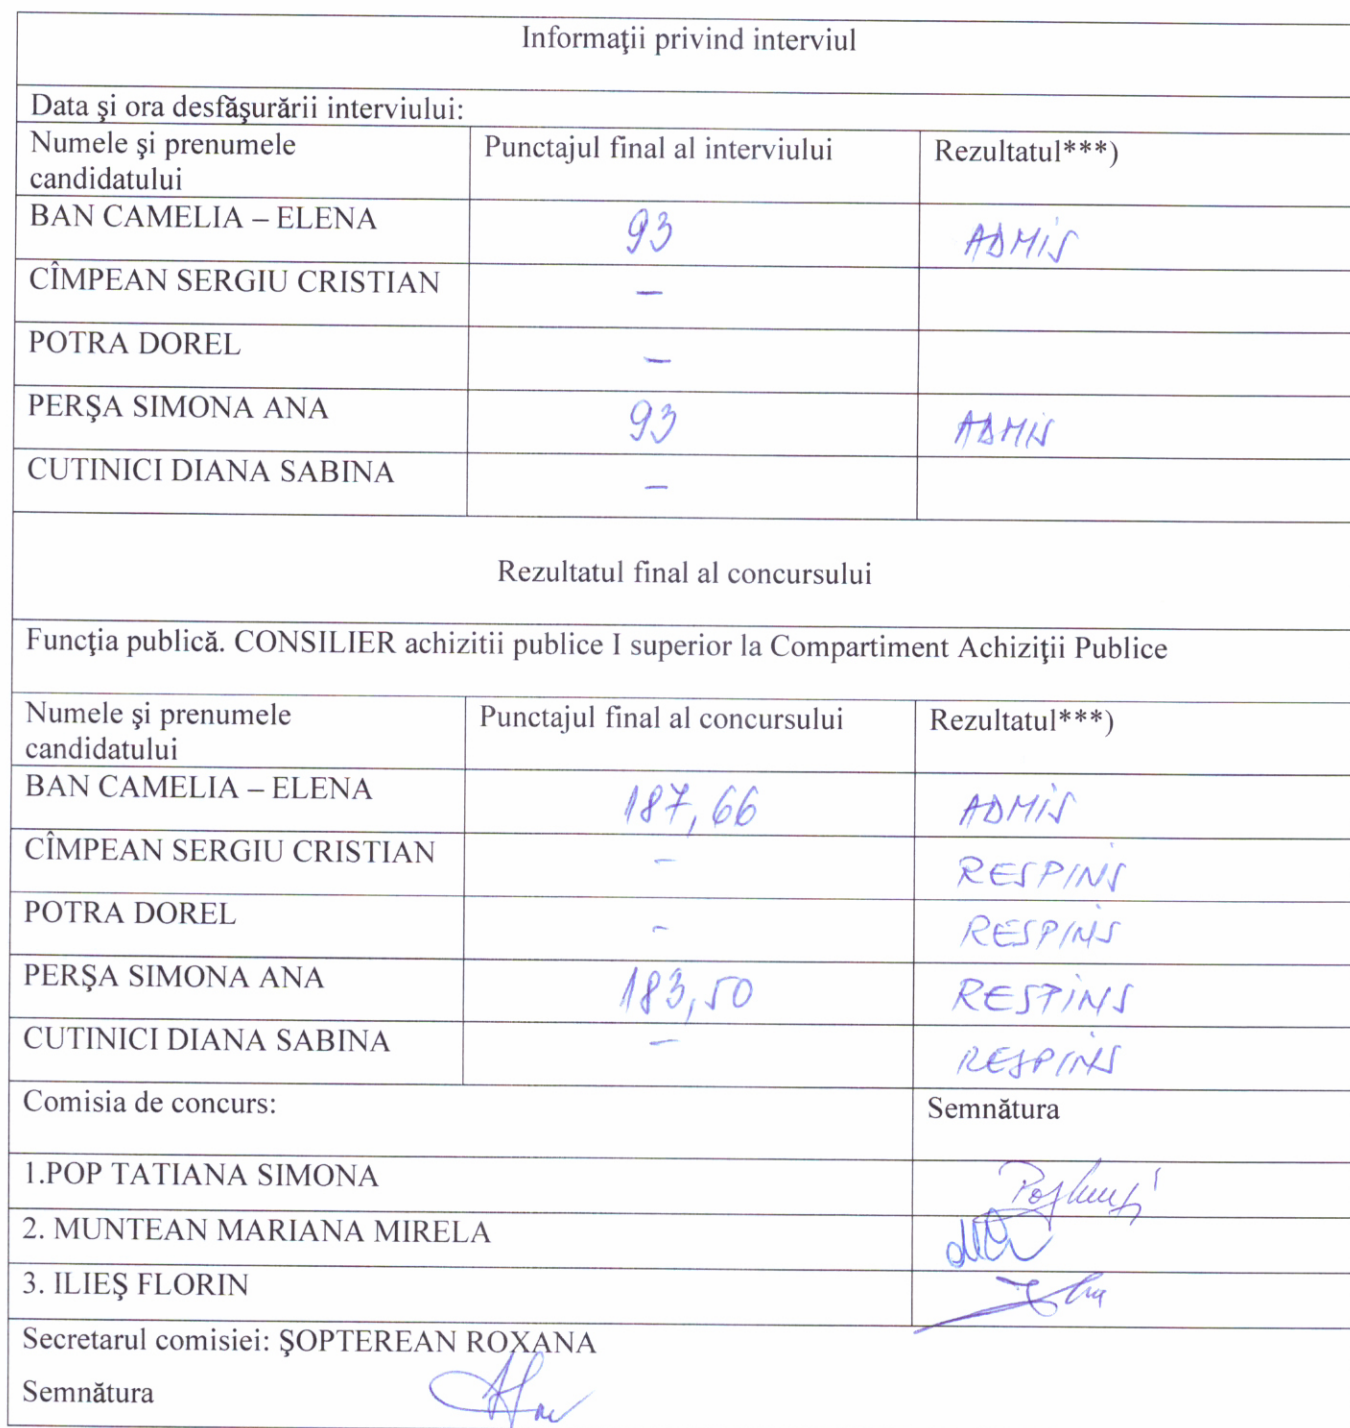 Informaţii privind interviul
Data şi ora desfăşurării interviului:
Numele şi prenumele candidatului Punctajul final al interviului Rezultatul***)
BAN CAMELIA – ELENA 93 ADMIS
CÎMPEAN SERGIU CRISTIAN –
POTRA DOREL –
PERŞA SIMONA ANA 93 ADMIS
CUTINICI DIANA SABINA –
Rezultatul final al concursului
Funcţia publică. CONSILIER achizitii publice I superior la Compartiment Achiziţii Publice
Numele şi prenumele candidatului Punctajul final al concursului Rezultatul***)
BAN CAMELIA – ELENA 187,66 ADMIS
CÎMPEAN SERGIU CRISTIAN - RESPINS
POTRA DOREL - RESPINS
PERŞA SIMONA ANA 183,50 RESPINS
CUTINICI DIANA SABINA – RESPINS
Comisia de concurs: Semnătura
1.POP TATIANA SIMONA
2. MUNTEAN MARIANA MIRELA
3. ILIEŞ FLORIN
Secretarul comisiei: ŞOPTEREAN ROXANA
Semnătura